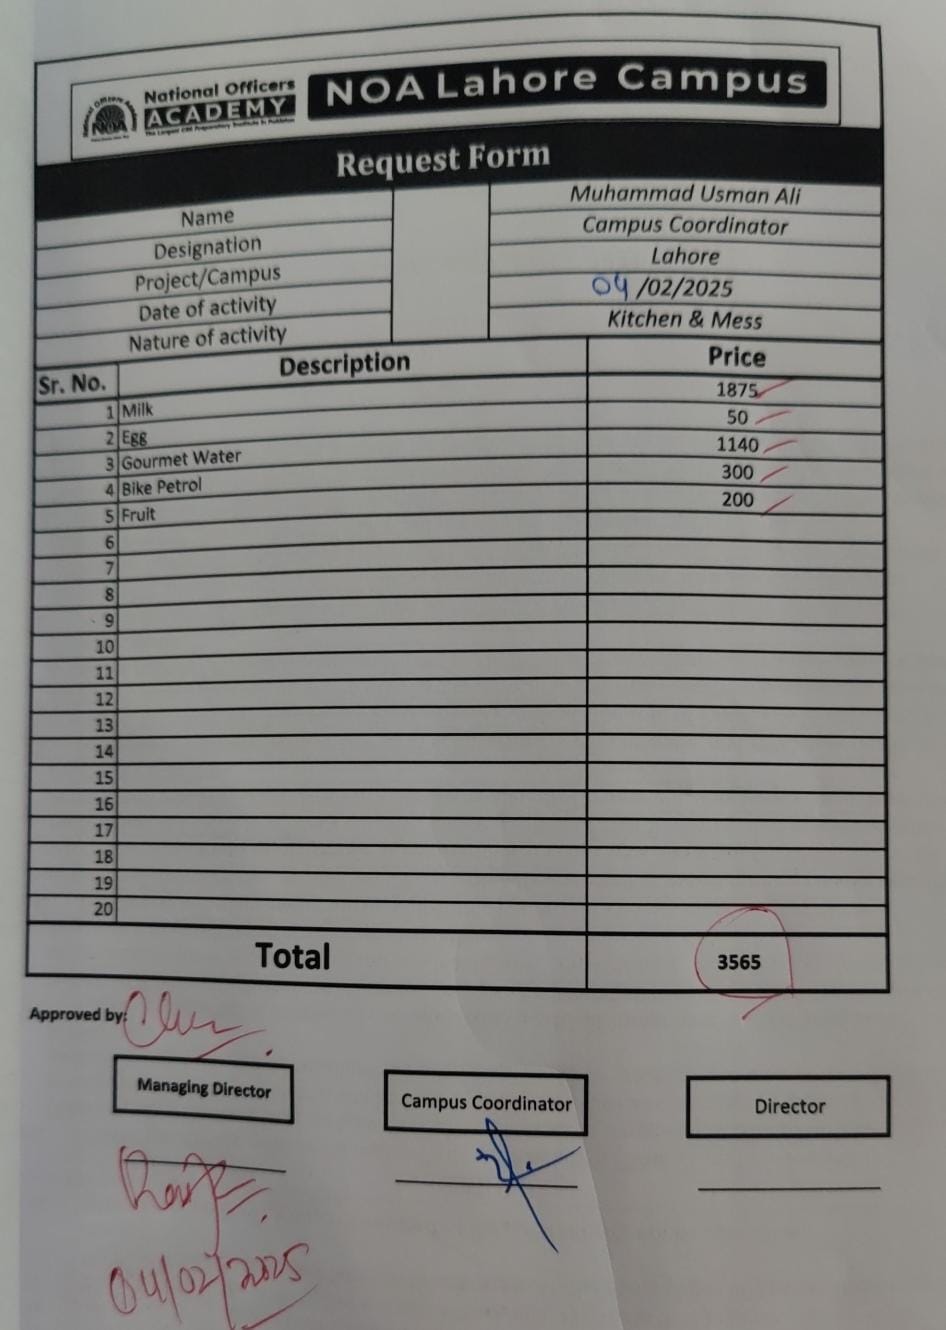 National Officers
ACADEMY
The Largest CSS Preparatory Institute in Pakistan
NOA
NOA Lahore Campus
Request Form
Name Muhammad Usman Ali
Designation Campus Coordinator
Project/Campus Lahore
Date of activity 04/02/2025
Nature of activity Kitchen & Mess
Sr. No. Description Price
1 Milk 1875
2 Egg 50
3 Gourmet Water 1140
4 Bike Petrol 300
5 Fruit 200
6
7
8
9
10
11
12
13
14
15
16
17
18
19
20
Total 3565
Approved by:
Managing Director Campus Coordinator Director
04/02/2025